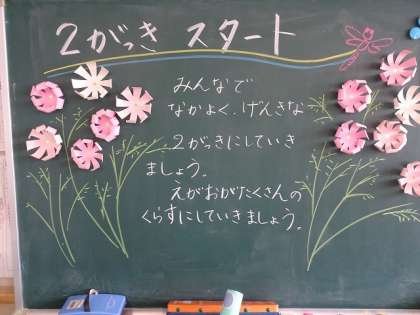 2がっき スタート
みんなで
なかよく、げんきな
2がっきにしていき
ましょう。
えがおがたくさんの
くらすにしていきましょう。